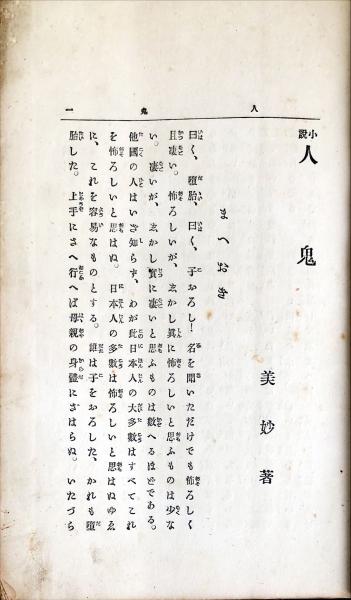 人鬼 一
小説 人鬼
美妙著
まへおき
曰く、堕胎、曰く、子おろし！名を聞いただけでも怖ろしく
且凄い。怖ろしいが、しかし真に怖ろしいと思ふものは少な
い。凄いが、しかし實に凄いと思ふものは數へるほどである。
他國の人はいざ知らず、わが此日本人の大多數はすべてこれ
を怖ろしいと思はぬ。日本人の多數は怖ろしいと思はぬゆゑ
に、これを容易なものとする。誰は子をおろした、かれも堕
胎した。上手にさへ行へば母親の身體にさはらぬ。いたづら